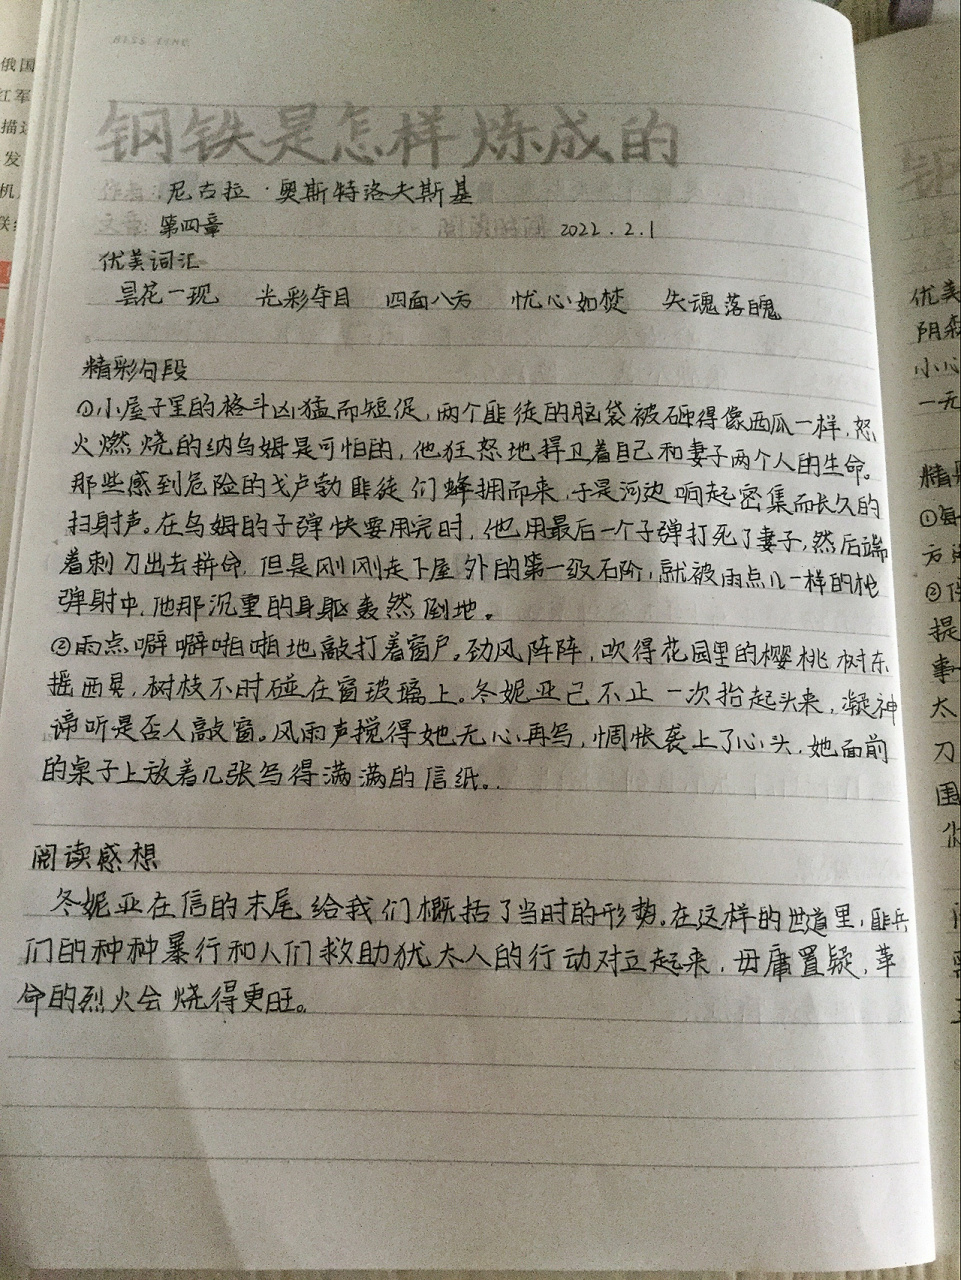 钢铁是怎样炼成的
尼古拉·奥斯特洛夫斯基
第四章 2022.2.1
优美词汇
昙花一现 光彩夺目 四面八方 忧心如焚 失魂落魄
精彩句段
①小屋子里的格斗凶猛而短促,两个匪徒的脑袋被砸得像西瓜一样,怒
火燃烧的纳乌姆是可怕的,他狂怒地捍卫着自己和妻子两个人的生命。
那些感到危险的戈卢勃匪徒们蜂拥而来,于是河边响起密集而长久的
扫射声。在乌姆的子弹快要用完时,他用最后一个子弹打死了妻子,然后端
着刺刀出去拼命,但是刚刚走下屋外的第一级石阶,就被雨点儿一样的枪
弹射中,他那沉重的身躯轰然倒地。
②雨点噼噼啪啪地敲打着窗户。劲风阵阵,吹得花园里的樱桃树东
摇西晃,树枝不时碰在窗玻璃上。冬妮亚已不止一次抬起头来,凝神
谛听是否人敲窗。风雨声搅得她无心再写,惆怅袭上了心头,她面前
的桌子上放着几张写得满满的信纸。
阅读感想
冬妮亚在信的末尾给我们概括了当时的形势。在这样的世道里,匪兵
们的种种暴行和人们救助犹太人的行动对立起来,毋庸置疑,革
命的烈火会烧得更旺。
俄国
红军
描述
发
机
优美
阴森
小心
一无
精彩
①每
方
②
提
事
太
刀
围